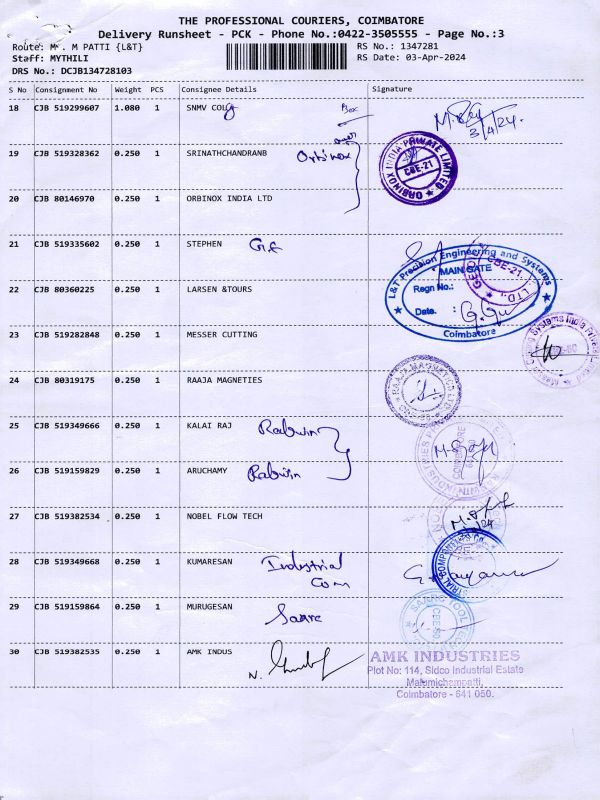 THE PROFESSIONAL COURIERS, COIMBATORE
Delivery Runsheet - PCK - Phone No.:0422-3505555 - Page No.:3
Route: M . M PATTI {L&T}
RS No.: 1347281
Staff: MYTHILI
RS Date: 03-Apr-2024
DRS No.: DCJB134728103
S No Consignment No Weight PCS Consignee Details Signature
18 CJB 519299607 1.080 1 SNMV COLG
3/4/24.
19 CJB 519328362 0.250 1 SRINATHCHANDRANB Orbinox
ORBINOX INDIA PRIVATE LIMITED
CBE-21
20 CJB 80146970 0.250 1 ORBINOX INDIA LTD
21 CJB 519335602 0.250 1 STEPHEN
L&T Precision Engineering and Systems
MAIN GATE
CBE-21
22 CJB 80360225 0.250 1 LARSEN &TOURS
Regn No.:
Date. :
Coimbatore
23 CJB 519282848 0.250 1 MESSER CUTTING
24 CJB 80319175 0.250 1 RAAJA MAGNETIES
25 CJB 519349666 0.250 1 KALAI RAJ Rabwin
26 CJB 519159829 0.250 1 ARUCHAMY Rabwin
27 CJB 519382534 0.250 1 NOBEL FLOW TECH
28 CJB 519349668 0.250 1 KUMARESAN Industrial
Com
29 CJB 519159864 0.250 1 MURUGESAN Saare
30 CJB 519382535 0.250 1 AMK INDUS
AMK INDUSTRIES
Plot No: 114, Sidco Industrial Estate
Malumichampatti,
Coimbatore - 641 050.